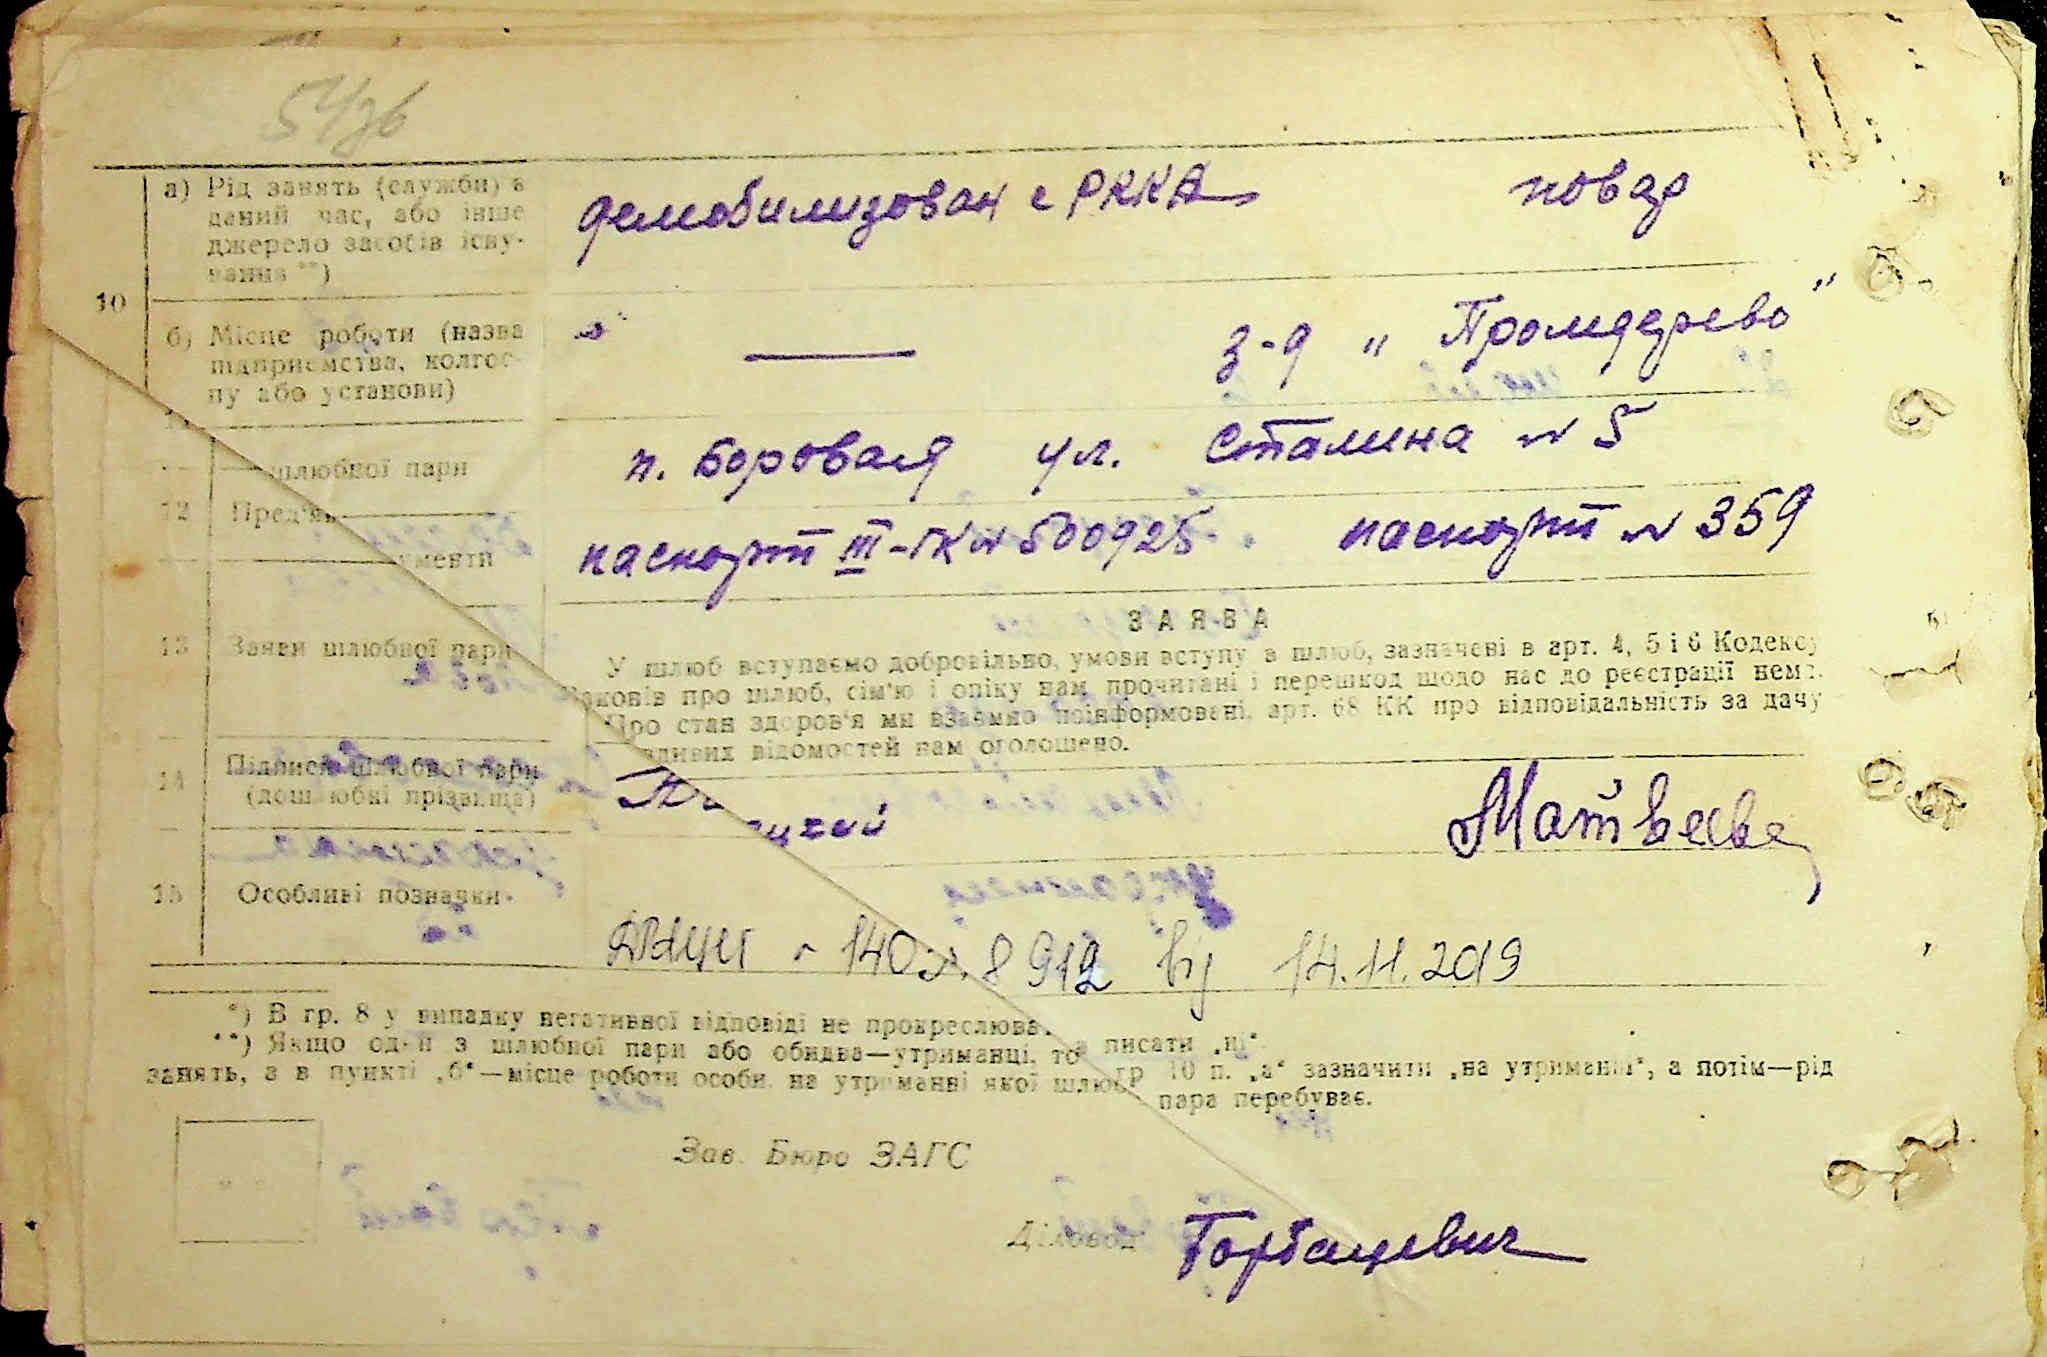 а) Рід занять (служби) в демобилизован с РККА повар
даний час, або інше
джерело засобів існу-
вання **)
10
б) Місце роботи (назва — з-д „Промдерево"
підприємства, колгос-
пу або установи)
шлюбної пари п. Боровая ул. Сталина № 5
12 Пред'яв паспорт III-ГК № 500925 паспорт № 359
ументи
ЗАЯВА
13 Заяви шлюбної пари У шлюб вступаємо добровільно, умови вступу в шлюб, зазначені в арт. 4, 5 і 6 Кодексу
аконів про шлюб, сім'ю і опіку нам прочитані і перешкод щодо нас до реєстрації нема.
Про стан здоров'я ми взаємно поінформовані, арт. 68 КК про відповідальність за дачу
вдивих відомостей нам оголошено.
14 Підписи шлюбної пари Матвеева
(дошлюбні прізвища)
15 Особливі позначки. 8912 від 14.11.2019
*) В гр. 8 у випадку негативної відповіді не прокреслюва писати „ні"
**) Якщо один з шлюбної пари або обидва—утриманці, то гр 10 п. „а" зазначити „на утриманні", а потім—рід
занять, а в пункті „б"—місце роботи особи, на утриманні якої шлюб пара перебуває.
Зав. Бюро ЗАГС
Діловод Горбацевич